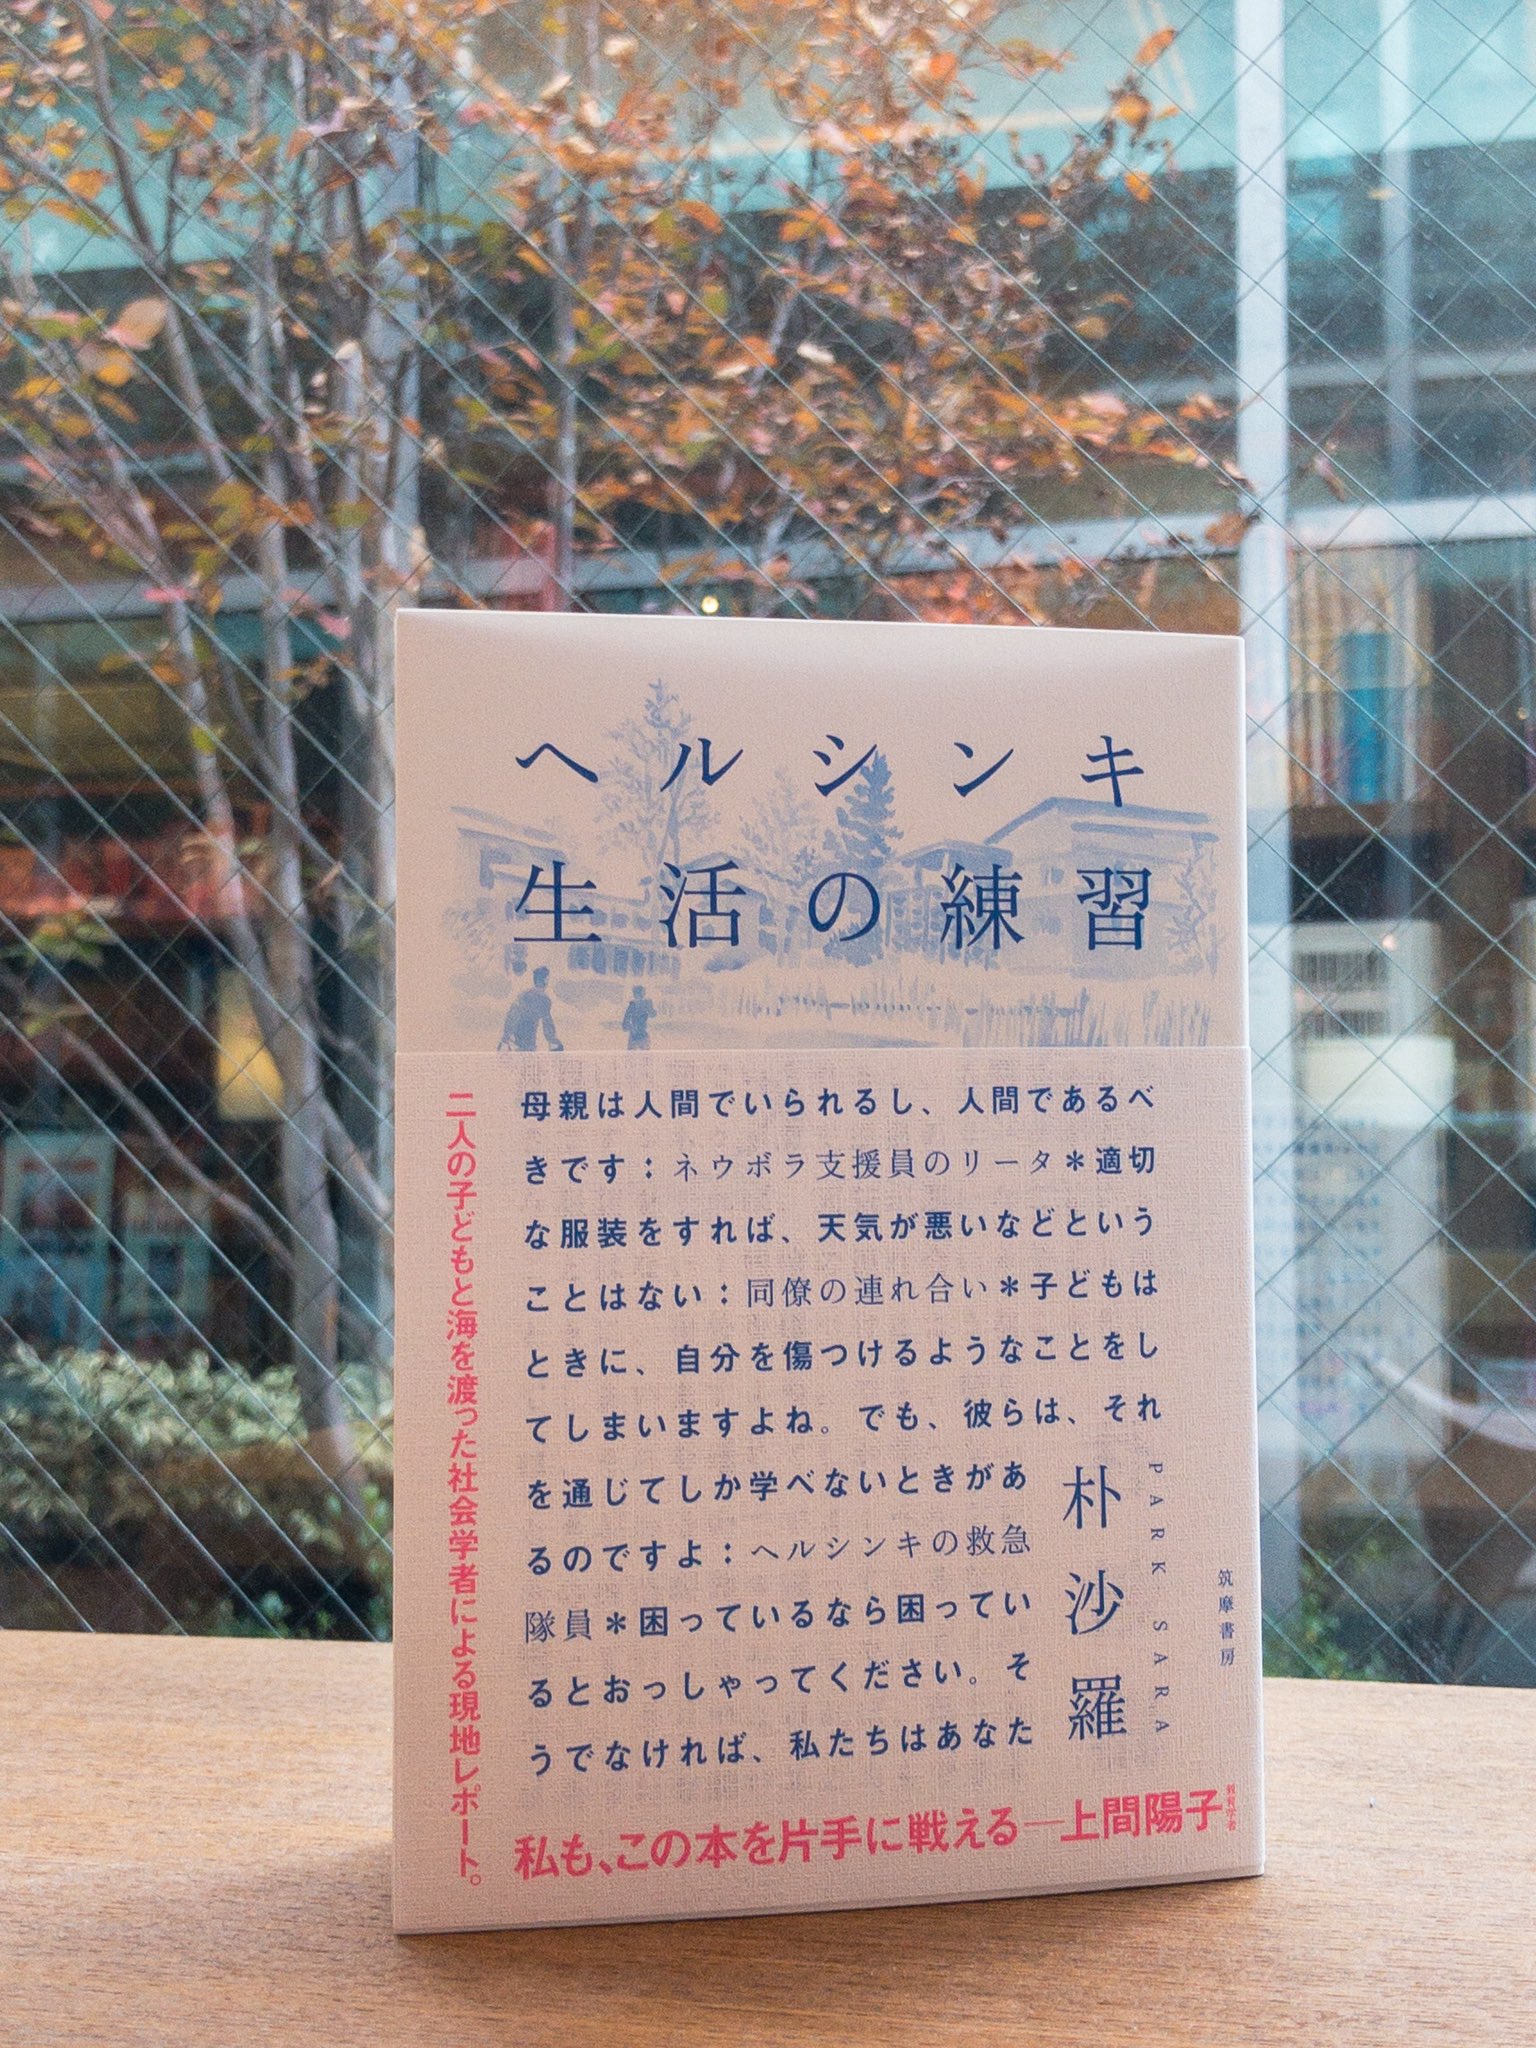 ヘルシンキ
生活の練習
母親は人間でいられるし、人間であるべ
きです：ネウボラ支援員のリータ＊適切
な服装をすれば、天気が悪いなどという
ことはない：同僚の連れ合い＊子どもは
ときに、自分を傷つけるようなことをし
てしまいますよね。でも、彼らは、それ
を通じてしか学べないときがあ
るのですよ：ヘルシンキの救急
隊員＊困っているなら困ってい
るとおっしゃってください。そ
うでなければ、私たちはあなた
朴沙羅
PARK SARA
筑摩書房
二人の子どもと海を渡った社会学者による現地レポート。
私も、この本を片手に戦える―上間陽子 教育学者